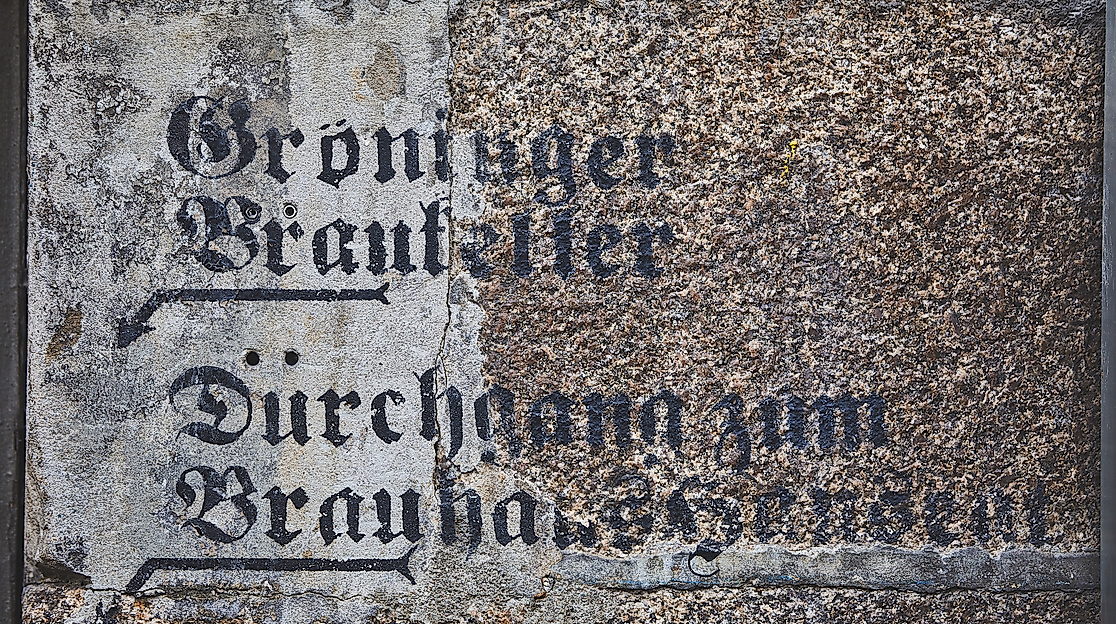 Gröninger
Braukeller
Durchgang zum
Brauhaus Hanseat